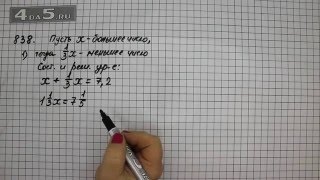 4DA5.RU
838. Пусть x - большее число,
1) тогда 1/3 x - меньшее число
Сост. и реш. ур-е:
x + 1/3 x = 7,2
1 1/3 x = 7 1/5